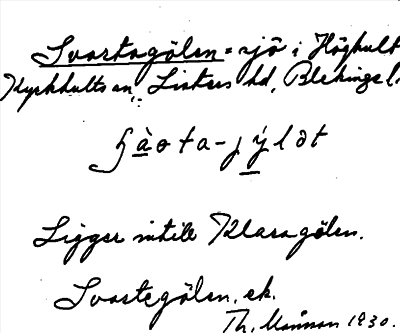 Svartagölen = sjö i Höghult
Kyrkhults sn, Listers hd, Blekinge l.
Ligger intill Klaragölen.
Svartegölen, ek.
Th. Månsson 1930.